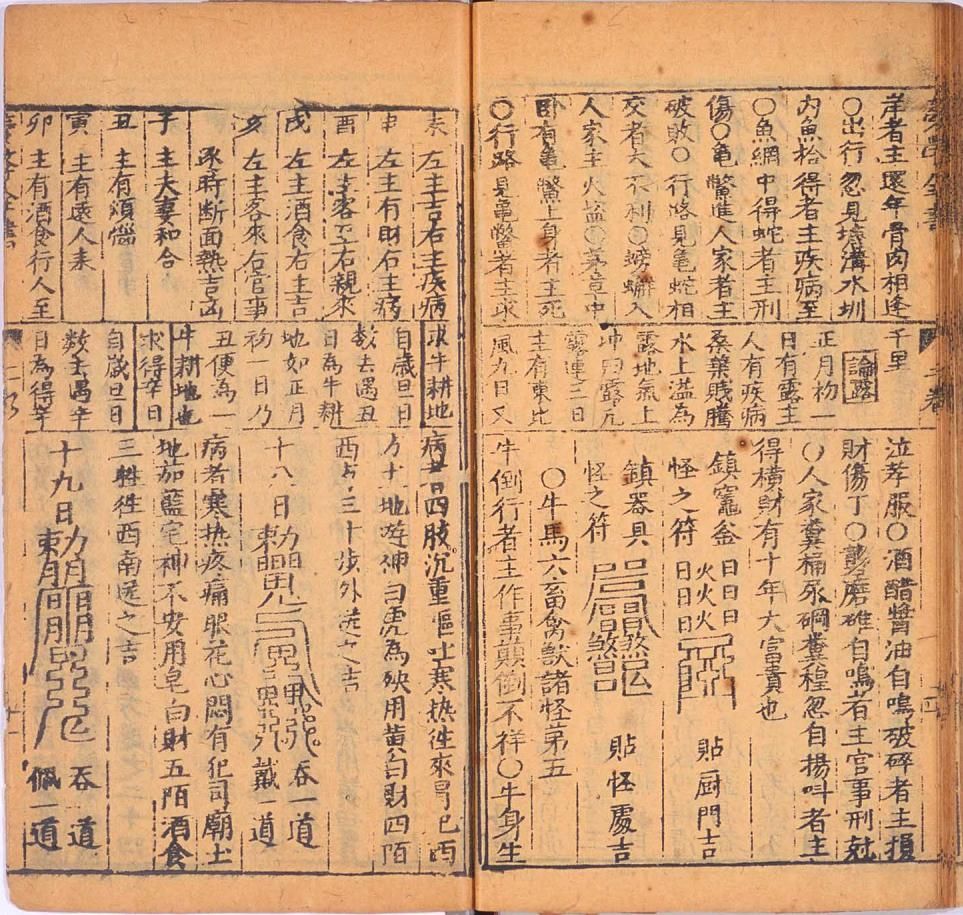 岸者主還年骨肉相逢
○出行忽見坑溝水圳
內魚拾得者主疾病至
○魚網中得蛇者主刑
傷○龜鱉進人家者主
破敗○行路見龜蛇相
交者大不利○螃蠏入
人家主火盜○墓塋中
臥有龜鱉上身者主死
○行路見龜鱉者主求
千里
論露
正月初一
日有露主
人有疾病
桑葉賤騰
水上溢為
露地氣上
坤曰露凡
露連三日
主有東北
風九日又
泣孝服○酒醋醬油自鳴破碎者主損
財傷丁○礱磨碓自鳴者主官事刑尅
○人家糞桶尿碙糞程忽自揚呌者主
得橫財有十年大富貴也
鎮竈釜
怪之符
日日日火火火
日日日
貼厨門吉
鎮器具
怪之符
貼怪處吉
○牛馬六畜禽獸諸怪苐五
牛倒行者主作事顛倒不祥○牛身生
未 左主吉右主疾病
申 左主有財右主病
酉 左主客至右親來
戌 左主酒食右主吉
亥 左主客來右官事
承時断面熱吉凶
子 主夫妻和合
丑 主有煩惱
寅 主有遠人來
卯 主有酒食行人至
求牛耕地
自歲旦日
数去遇丑
日為牛耕
地如正月
初一日乃
丑便為一
牛耕地也
求得辛日
自歲旦日
数去遇辛
日為得辛
四肢沉重嘔吐寒热徃來胃巳西
方十地遊神白虎為殃用黄白財四陌
西方三十步外送之吉
十八日
吞一道
戴一道
病者寒热疼痛眼花心悶有犯司廟土
地茄藍宅神不安用皂白財五陌酒食
三牲徃西南送之吉
十九日
吞一道
佩一道